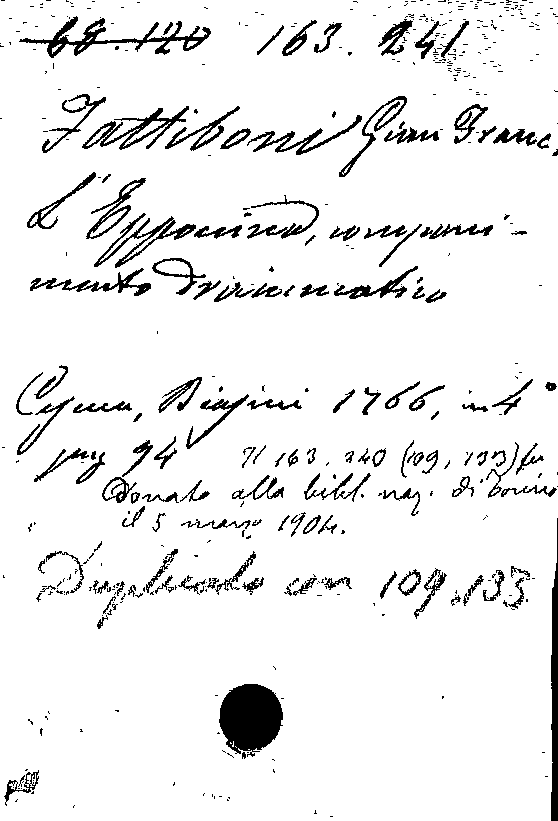 68.120 163.241
Fattiboni Gian Franc.
L'Eppocina, componi-
mento drammatico
Cesena, Biasini 1766, in 4°
pag 94 Il 163.240 (109,133) fu
donato alla bibl. naz. di Torino
il 5 marzo 1904.
Duplicato con 109.133